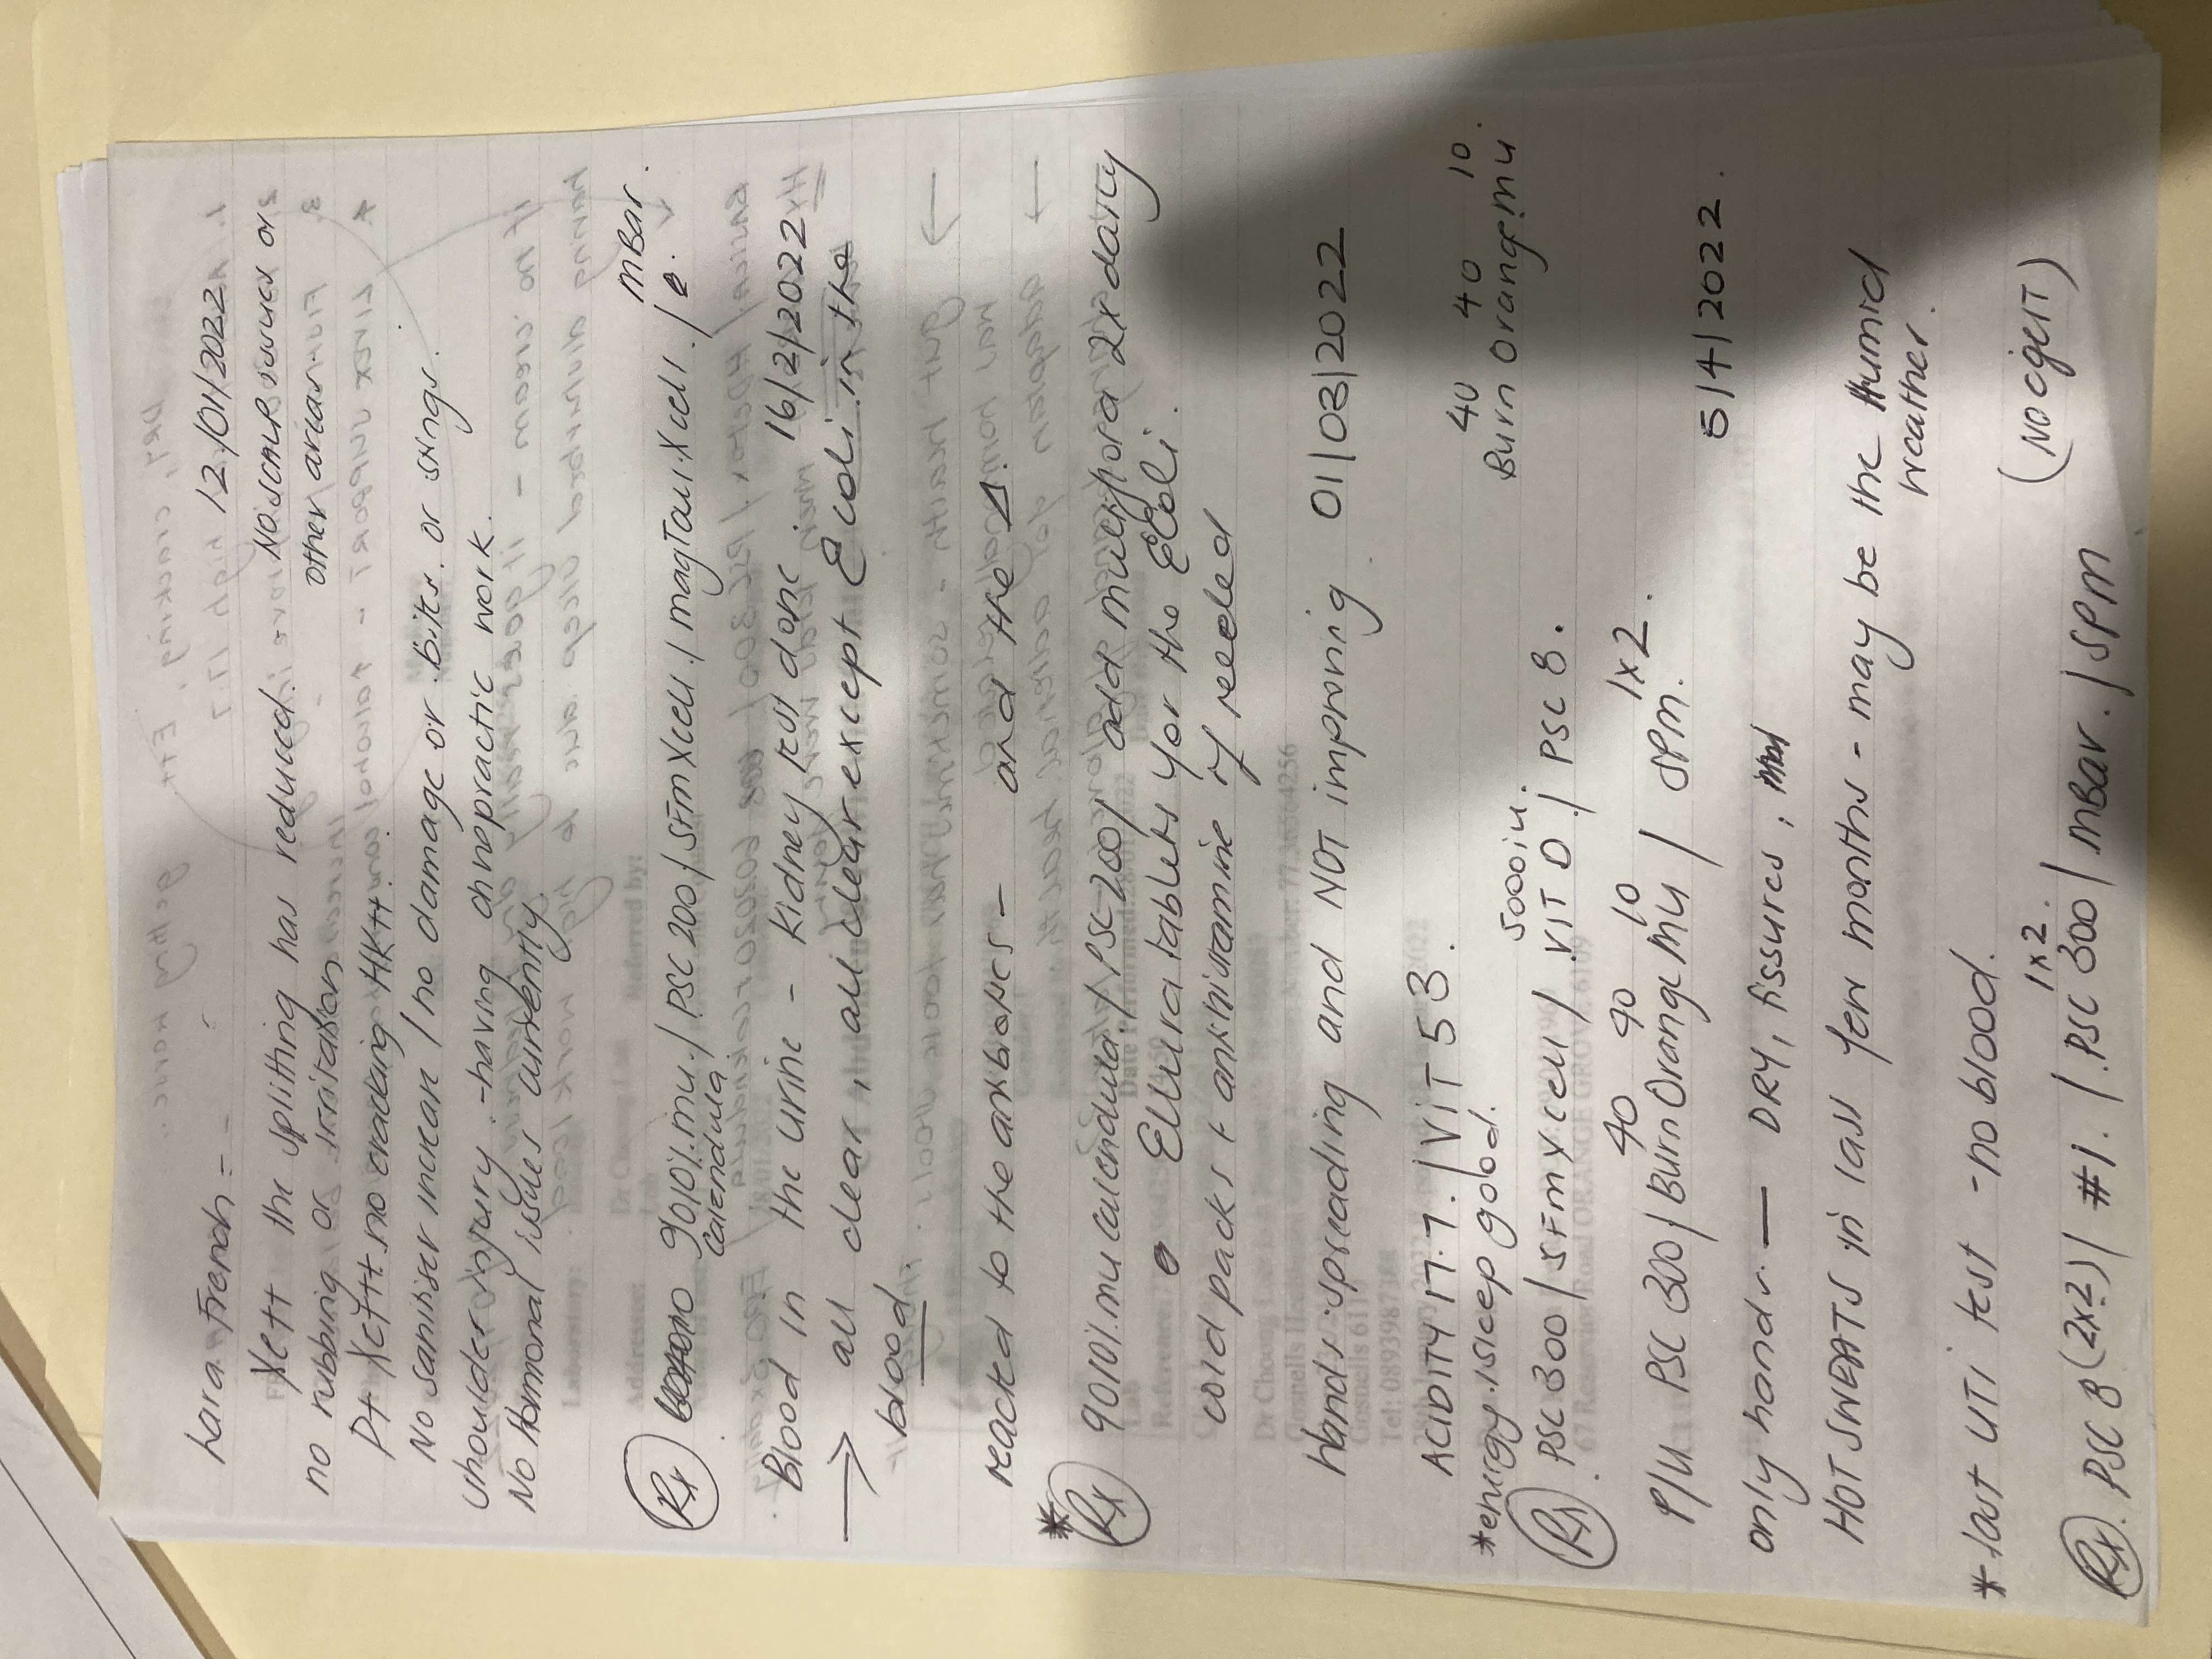 Lara French = - 12/01/2022
Xett the splitting has reduced. No scalp issues or
no rubbing or irritation other areas
Pt Xett no cracking HKtt.
No sanitiser increase / no damage or bites or stings.
shoulder injury - having chiropractic work.
No Hormonal issues currently.
mBar.
Rx 90/10%. mu. / PSC 200 / SFm Xcell / magTaur Xcell. /
calendula
Blood in the urine - kidney test done 16/2/2022
→ all clear, all clear except E coli in the
blood.
react to the antibiotics - and the Δ.
* Rx 9010%. mu calendula. / PSC 200 / add multipora 2x daily
Ellura tablets for the E Coli.
cold packs + antihistamine if needed
hands: spreading and NOT improving 01/03/2022
ACIDITY 17.7. / VIT 53.
* energy. / sleep good. 40 40 10
5000iu. Burn Orange mu
Rx PSC 300 / SFm Xcell / VIT D / PSC 8.
40 90 10 1x2.
P/U PSC 300 / Burn Orange mu / SPM.
5/4/2022.
only hands. — DRY, fissures,
HOT SWEATS in last few months - may be the Humid
weather.
* last UTI test - no blood.
1x2. (NO CigEIT)
Rx. PSC 8 (2x2) / #1. / PSC 300 / mBar. / SPM